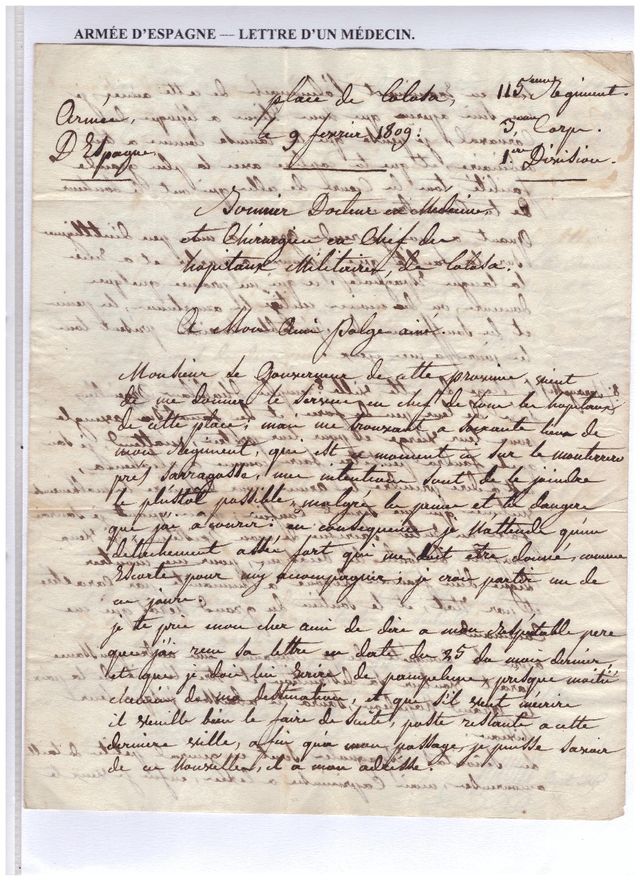 ARMÉE D'ESPAGNE — LETTRE D'UN MÉDECIN.
place de tolosa, 115eme Régiment.
Armée, a 9 fevrier 1809: 3eme Corps.
D'Espagne, 1ere Division.
Docteur en Médecine,
et Chirurgien en Chef des
hopitaux Militaires, de tolosa.
A Mon Ami polge ainé.
Monsieur le Gouverneur de cette province, vient
de me donner le service en chef de tous les hopitaux
de cette place; mais me trouvant a soixante lieux de
mon regiment, qui est ce moment ci sur le monterrero
prés Sarragosse, mes intentions sont de le joindre
le plustot possible, malgré les peines et les dangers
que j'ai a courir: en consequence je n'attends qu'un
détachement assés fort qui me doit etre donné, comme
Escorte pour m'y acompagner, je crois partir un de
ces jours.
je te prie mon cher ami de dire a mon respectable pere
que j'ai recu sa lettre en date du 25 du mois dernier,
et que je dois lui Ecrire de pampelune presque moitié
chemin de ma destination, et que s'il veut m'écrire
il veuille bien le faire de suite, poste restante a cette
derniere ville, afin qu'a mon passage, je puisse savoir
de ces nouvelles, et a mon adresse.